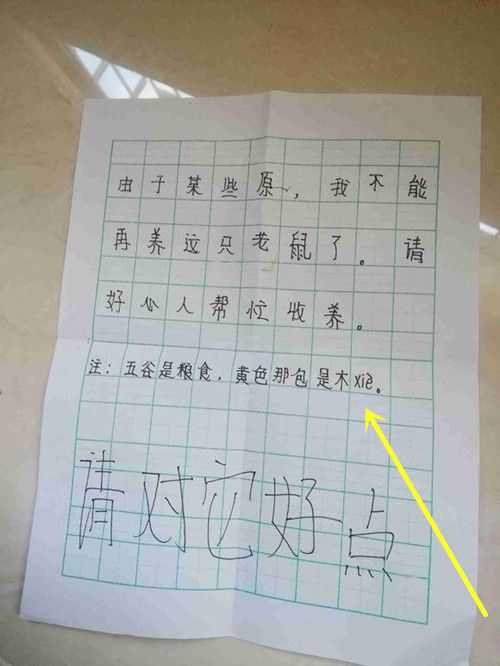 由于某些原~，我不能
再养这只老鼠了。请
好心人帮忙收养。
注：五谷是粮食，黄色那包是木xiè。
请对它好点